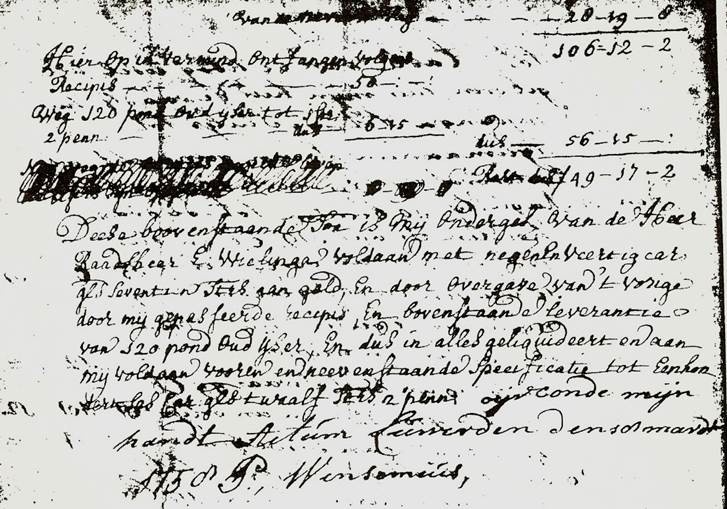 van de 28-19-8
106-12-2
Hier op in Vermind. Ontfangen volgens
Recipis 50 - -
Weg 120 pond Oud ijser tot
2 penn 6-15 - dus 56-15 -
Rest 49-17-2
Deese boovenstaande is mij Onderges. van de Heer
Raadsheer E. Wielinga voldaan met negen En veertig car
gls seventin st:rs aan geld, En door overgave van't vorige
door mij gepasseerde recipis, En bovenstaande leverantie
van 120 pond Oud ijser, En dus in alles geliquideert en aan
mij voldaan vooren en neevenstaande Specificatie tot Eenhon
dert ses car gls twaalf st:rs 2 penn: oirconde mijn
handt Actum Leuwerden den 18 mardt
1758 P. Winsemius,